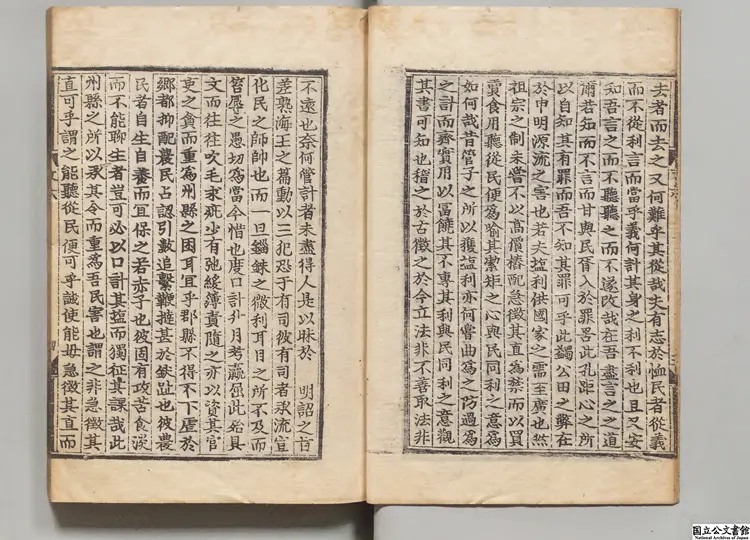 去者而去之又何難乎其從哉夫有志於恤民者從義
而不從利言而當乎義何計其身之利不利也且又安
知吾言之而不聽聽之而不遂改哉在吾盡言之之道
爾若知而不言而甘與民胥入於罪罟此孔距心之所
以自知其有罪而吾不知其罪可乎此蠲公田之弊在
於申明源流之害也若夫塩利供國家之需至廣也然
祖宗之制未嘗不以高價樁配急徵其直為禁而以買
賣食用聽從民便為喻其絜矩之心與民同利之意為
如何哉昔管子之所以獲塩利亦何嘗曲為之防過為
之計而齊實用以富饒其不專其利與民同利之意觀
其書可知也稽之於古徵之於今立法非不善取法非
不遠也奈何管計者未盡得人是以昧於 明詔之旨
差熟海王之篇動以三犯恐于有司彼有司者承流宣
化民之師帥也而一旦錙銖之微利耳目之所不及而
笞辱之愚切為當今惜也度口計外月考此始具
文而往往吹毛求疵少有弛緩簿責隨之亦以資其官
吏之貪而重為州縣之困耳宜乎郡縣不得不下虐於
鄉都抑配農民占認引數追繫鞭撻甚於鈇趾也彼農
民者自生自養而宜保之若赤子也彼固有攻苦食淡
而不能聊生者豈可必以口計其塩而獨征其課哉此
州縣之所以承其令而重為吾民害也謂之非急徵其
直可乎謂之能聽從民便可乎誠使能毋急徵其直而
国立公文書館
National Archives of Japan